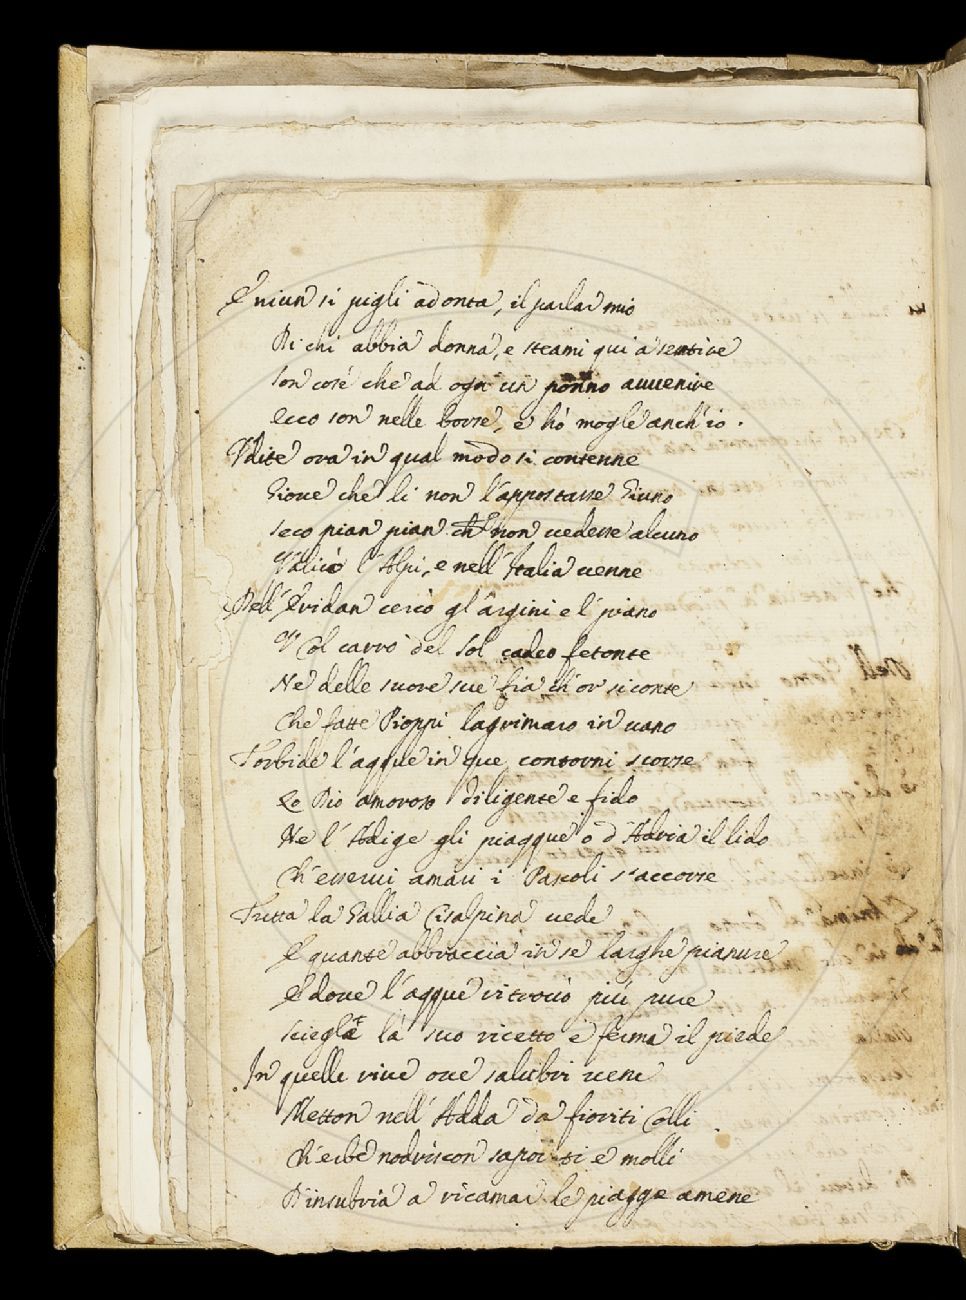 E niun si pigli ad onta, il parlar mio
Di chi abbia donna, e steami qui a sentire
Son cose che ad ogn un ponno auuenire
Ecco son nelle borse, e hò mogle anch'io.
Vdite ora in qual modo si contenne
Gioue che lì non l'appostasse Giuno
Seco pian pian che non uedesse alcuno
Valicò l'Alpi, e nell'Italia uenne
Dell'Eridan cercò gl'argini e l'piano
V' Col carro del Sol cadeo fetonte
Ne delle suore sue fia ch'or si conte
Che fatte Pioppi lagrimaro in uano
Torbide l'acque in que contorni scorse
Lo Dio amoroso diligente e fido
Ne l'Adige gli piacque ò d'Adria il lido
Ch'esserui amari i Pascoli s'accorse
Tutta la Gallia Cisalpina uede
E quante abbraccia in se larghe pianure
E doue l'acque ritrouò più pure
Sciegle là suo ricetto e ferma il piede
In quelle riue oue salubri uene
Metton nell'Adda da fioriti Colli
Ch'erbe nodriscon saporiti e molli
D'insubria a ricamar le piagge amene